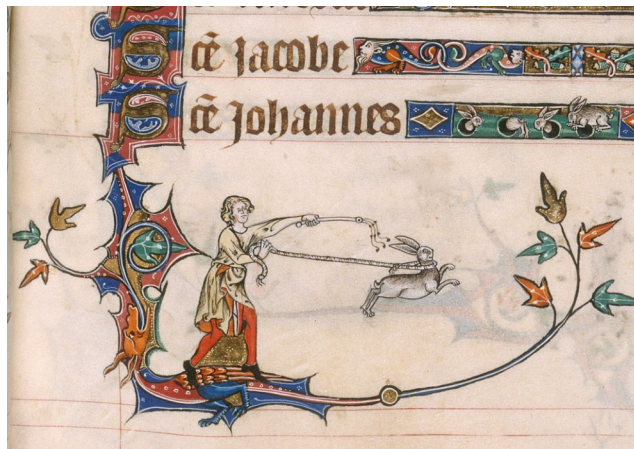 Scē jacobe
Scē johannes